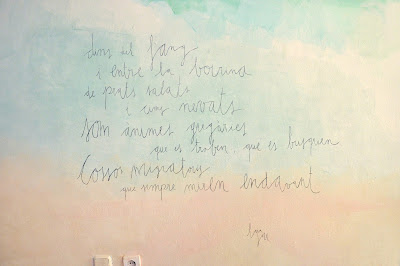 dins del fang
i entre la boirina
de prats salats
i cims nevats
som ànimes gregàries
que es troben, que es busquen
Cossos migratoris
que sempre miren endavant